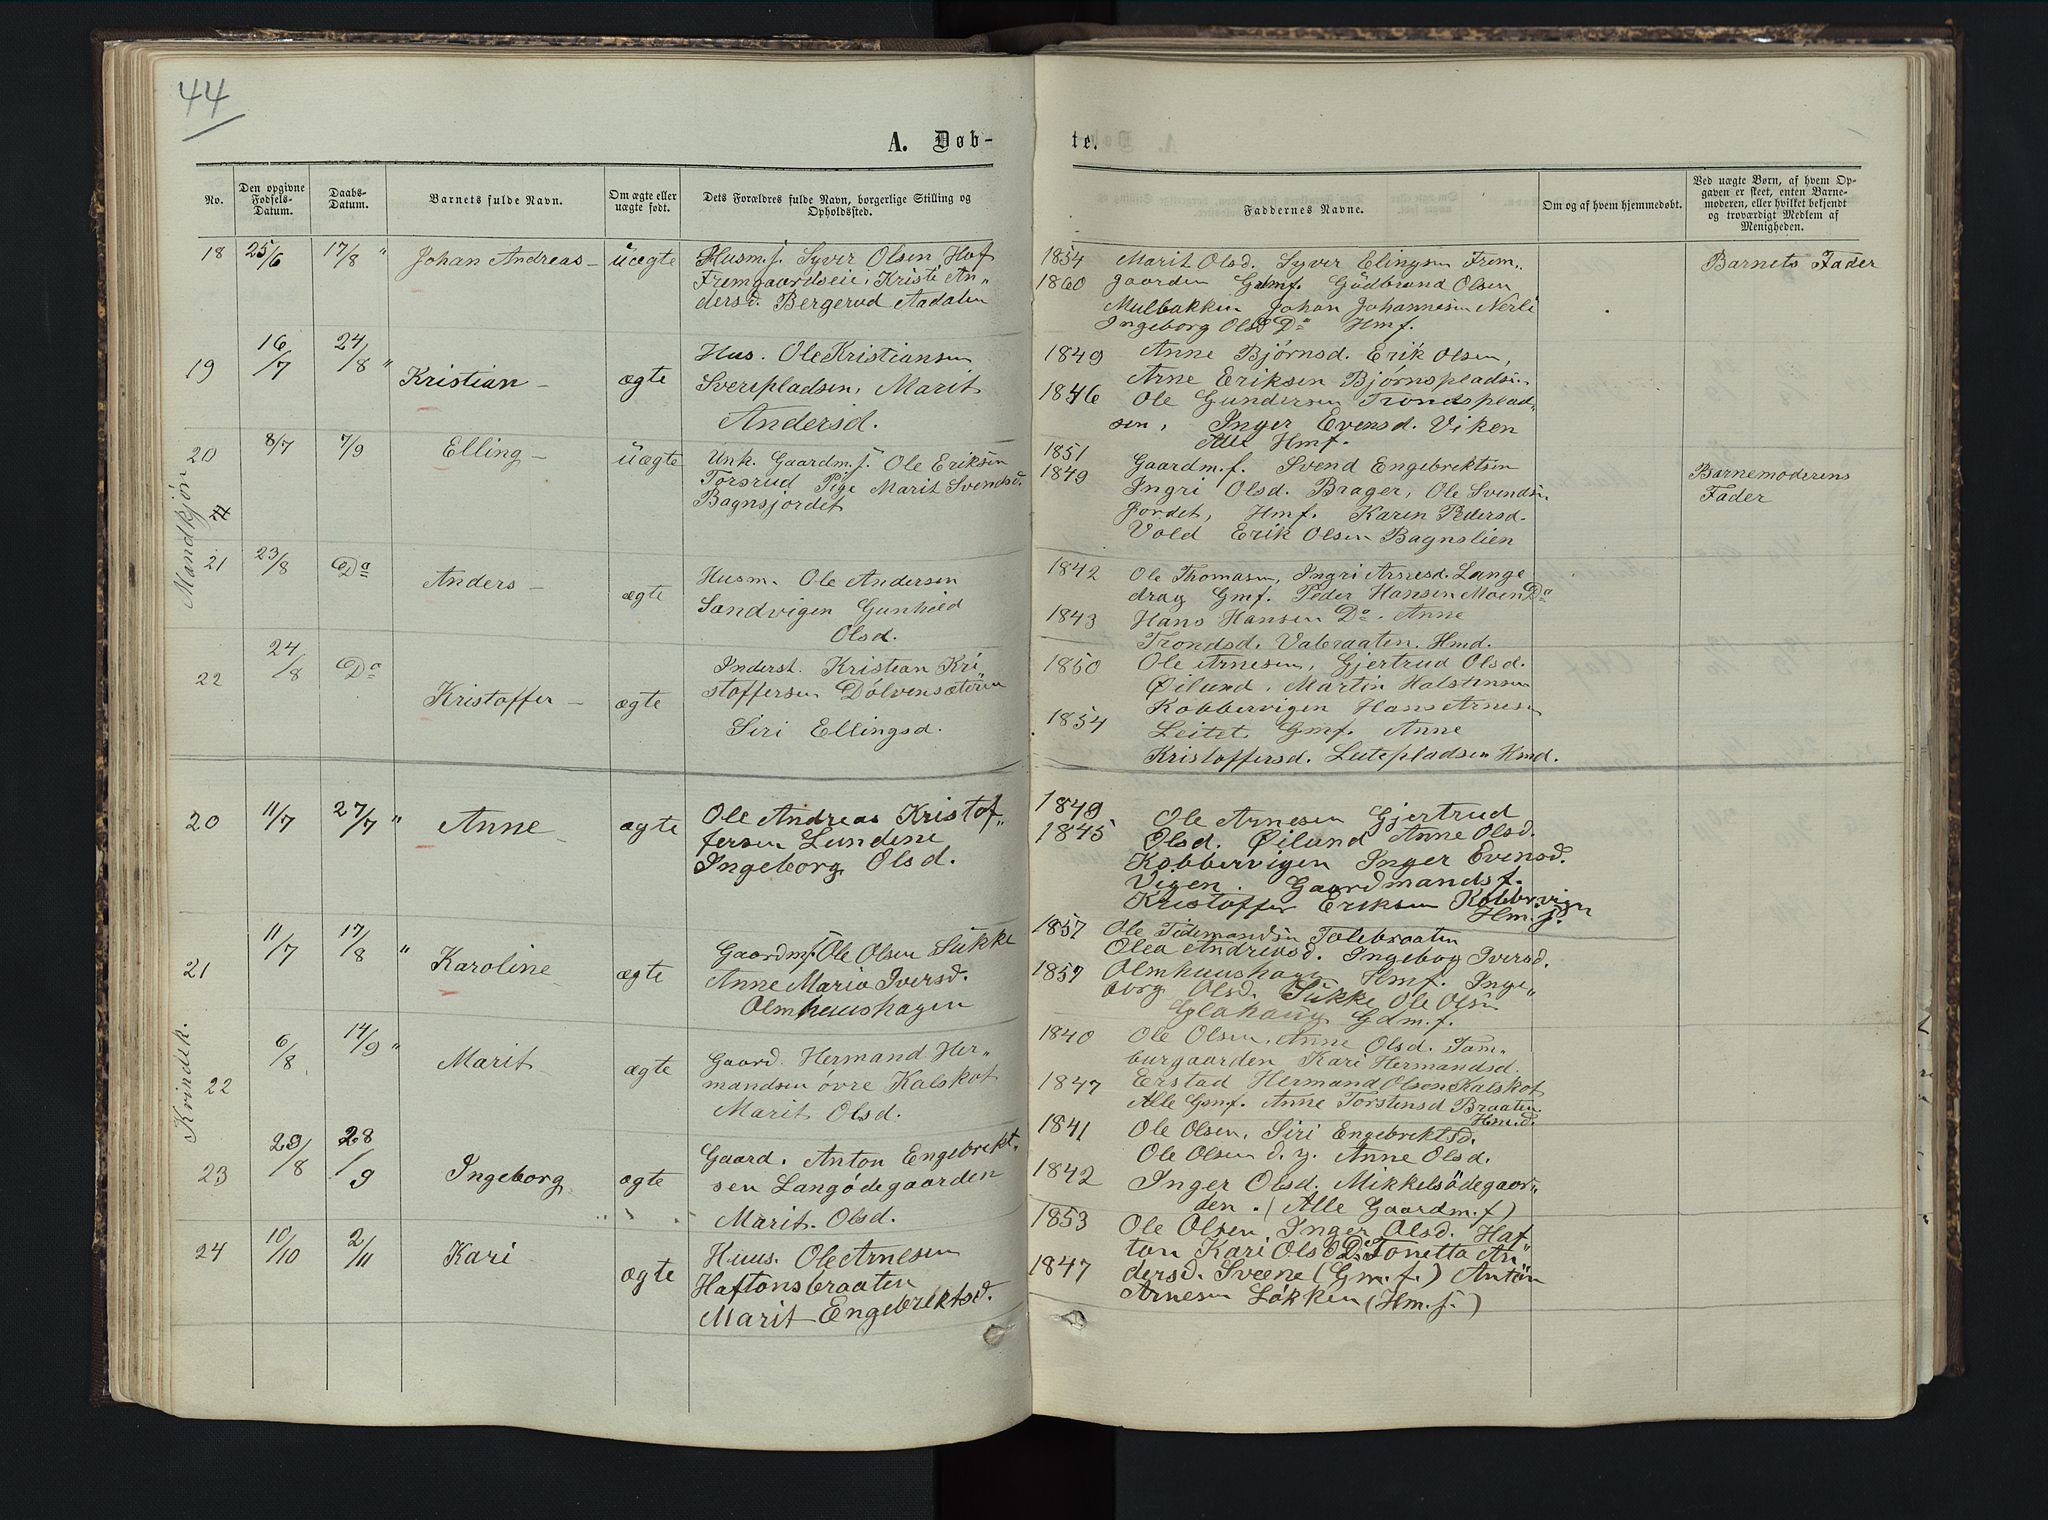 44
A. Døb-
te.
No.
Den opgivne Fødsels-Datum.
Daabs-Datum.
Barnets fulde Navn.
Om ægte eller uægte født.
Dets Forældres fulde Navn, borgerlige Stilling og Opholdssted.
Faddernes Navne.
Om og af hvem hjemmedøbt.
Ved uægte Børn, af hvem Opgaven er skeet, enten Barnemoderen, eller hvilket bekjendt og troværdigt Medlem af Menigheden.
Mandkjøn
18 25/6 17/8 " Johan Andreas - uægte
Husm.f. Syver Olsen Haf
Fremgaardseie, Kristi An„
dersd. Bergerud Aadalen
1854 Marit Olsd. Syver Elingsen Frem„
1860 gaarden Gmf. Gudbrand Olsen
Mulbakken Johan Johannesen Nerli
Ingeborg Olsd Do Hmf.
Barnets Fader
19 16/7 24/8 " Kristian - ægte
Hus. Ole Kristiansen
Sverepladsen, Marit
Andersd.
1849 Anne Bjørnsd. Erik Olsen,
Arne Eriksen Bjørnspladsen
1846 Ole Gundersen Trondsplad„
sen, Inger Evensd. Viken
Alle Hmf.
20 8/7 7/9 Elling - uægte
Unk. Gaardm.f. Ole Eriksen
Torsrud Pige Marit Svendsd.
Bagnsjordet
1851
1849 Gaardm.f. Svend Engebrektsen
Ingri Olsd. Brager, Ole Svends.
Jordet, Hmf. Karen Pedersd.
Vold Erik Olsen Bagnslien
Barnemoderens
Fader
21 23/8 Do Anders - ægte
Husm. Ole Andersen
Sandvigen Gunhild
Olsd.
1842 Ole Thomasen, Ingri Arnesd. Lange
drag Gmf. Peder Hansen Moen Do
1843 Hans Hansen Do. Anne
Trondsd. Valbraaten. Hmd.
22 24/8 Do Kristoffer - ægte
Inderst. Kristian Kri
stoffersen Dølvensæteren
Siri Ellingsd.
1850 Ole Arnesen, Gjertrud Olsd.
Øilund, Martin Halstensen
Kobbervigen Hans Arnesen
1854 Leitet Gmf. Anne
Kristoffersd. Leitepladsen Hmd.
Kvindek.
20 11/7 27/7 " Anne - ægte
Ole Andreas Kristof„
fersen Lundene
Ingeborg Olsd.
1849 Ole Arnesen Gjertrud
1845 Olsd. Øilund Anne Olsd.
Kobbervigen Inger Evensd.
Vigen. Gaardmandsf.
Kristoffer Eriksen Kobbervigen
Hm.f.
21 11/7 17/8 " Karoline ægte
Gaardmf Ole Olsen Sukke
Anne Maria Iversd.
Olmhuushagen
1857 Ole Tidemandsen Tolebraaten
Olea Andreasd. Ingebog Iversd.
1857 Olmhuushagen Hmf. Inge„
borg Olsd. Sukke Ole Olsen
Glahaug Gdm.f.
22 6/8 14/9 " Marit ægte
Gaard. Hermand Her„
mandsen øvre Kalskot
Marit Olsd.
1840 Ole Olsen, Anne Olsd. Tam„
burgaarden Kari Hermandsd.
1847 Erstad Hermand Olsen Kalskot
Alle Gmf. Anne Torstensd Braaten.
Hmd.
23 29/8 28/9 Ingeborg ægte
Gaard. Anton Engebrekt„
sen Langødegaarden
Marit. Olsd.
1841 Ole Olsen, Siri Engebrektsd.
Ole Olsen d. y. Anne Olsd.
1842 Inger Olsd. Mikkelsødegaar„
den. (Alle Gaardm.f)
24 10/10 2/11 Kari ægte
Huus. Ole Arnesen
Haftonsbraaten
Marit Engebrektsd.
1853 Ole Olsen, Inger Olsd. Haf„
ton Kari Olsd. Do Tonetta An
1847 dersd. Sveene (Gm.f.) Anton
Arnesen Løkken (Hm.f.)